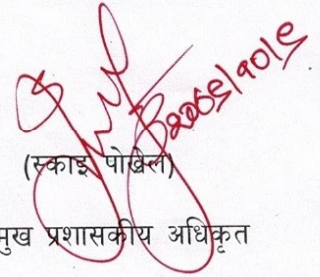 २०७९/१०/९
(स्काइ पोखेल)
मुख प्रशासकीय अधिकृत